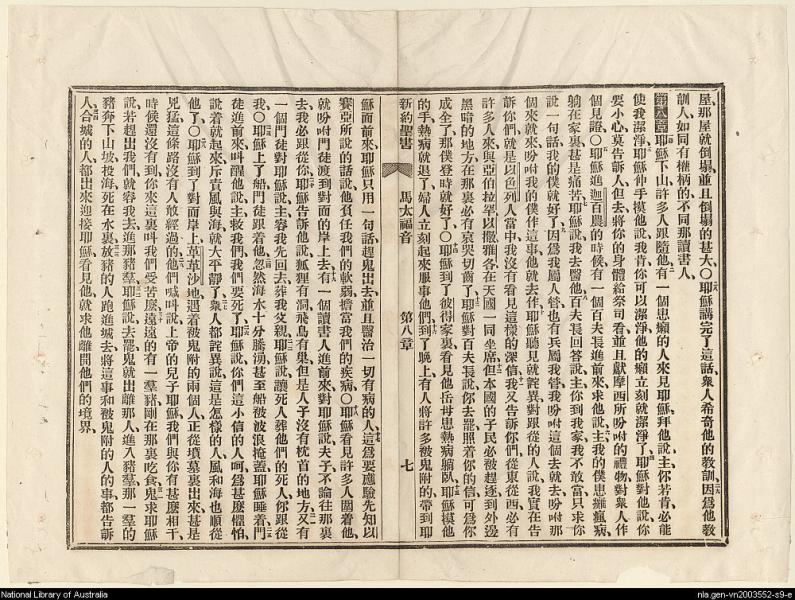 屋那屋就倒塌並且倒塌的甚大〇耶穌講完了這話衆人希奇他的教訓因爲他教
訓人如同有權柄的不同那讀書人
第八章耶穌下山許多人跟隨他有一個患癩的人來見耶穌拜他說主你若肯必能
使我潔淨耶穌伸手摸他說我肯你可以潔淨他的癩立刻就潔淨了耶穌對他說你
要小心莫告訴人但去將你的身體給祭司看並且獻摩西所吩咐的禮物對衆人作
個見證〇耶穌進迦百農的時候有一個百夫長進前來求他說主我的僕患癱瘋病
躺在家裏甚是痛苦耶穌說我去醫他百夫長回答說主你到我家我不敢當只求你
說一句話我的僕就好了因爲我屬人管也有兵屬我管我吩咐這個去就去吩咐那
個來就來吩咐我的僕作這事他就去作耶穌聽見就詫異對跟從的人說我實在告
訴你們就是以色列人當中我沒有看見這樣的深信我又告訴你們從東從西必有
許多人來與亞伯拉罕以撒雅各在天國一同坐席但本國的子民必被趕逐到外邊
黑暗的地方在那裏必有哀哭切齒了耶穌對百夫長說你去罷照着你的信可爲你
成全了那僕登時就好了〇耶穌到了彼得家裏看見他岳母患熱病躺臥耶穌摸他
的手熱病就退了婦人立刻起來服事他們到了晚上有人將許多被鬼附的帶到耶
新約聖書 馬太福音 第八章 七
穌面前來耶穌只用一句話趕鬼出去並且醫治一切有病的人這爲要應驗先知以
賽亞所說的話說他負任我們的軟弱擔當我們的疾病〇耶穌看見許多人圍着他
就吩咐門徒渡到對面的岸上去有一個讀書人進前來對耶穌說夫子不論往那裏
去我必跟從你耶穌告訴他說狐狸有洞飛鳥有巢但是人子沒有枕首的地方又有
一個門徒對耶穌說主容我先回去葬我父親耶穌說讓死人葬他們的死人你跟從
我〇耶穌上了船門徒跟着他忽然海水十分騰湧甚至船被波浪掩蓋耶穌睡着門
徒進前來叫醒他說主救我們我們要死了耶穌說你們這小信的人呵爲甚麽懼怕
說着就起來斥責風與海就大平靜了衆人都詫異說這是怎樣的人風和海也順從
他了〇耶穌到了對面岸上革革沙地遇着被鬼附的兩個人正從墳墓裏出來甚是
兇猛這條路沒有人敢經過的他們喊叫說上帝的兒子耶穌我們與你有甚麽相干
時候還沒有到你來這裏叫我們受苦麽遠遠的有一羣豬剛在那裏吃食鬼求耶穌
說若趕出我們就容我去進那豬羣耶穌說去罷鬼就出離那人進入豬羣那一羣的
豬奔下山坡投海死在水裏放豬的人跑進城去將這事和被鬼附的人的事都告訴
人合城的人都出來迎接耶穌看見他就求他離開他們的境界
National Library of Australia
nla.gen-vn2003552-s9-e